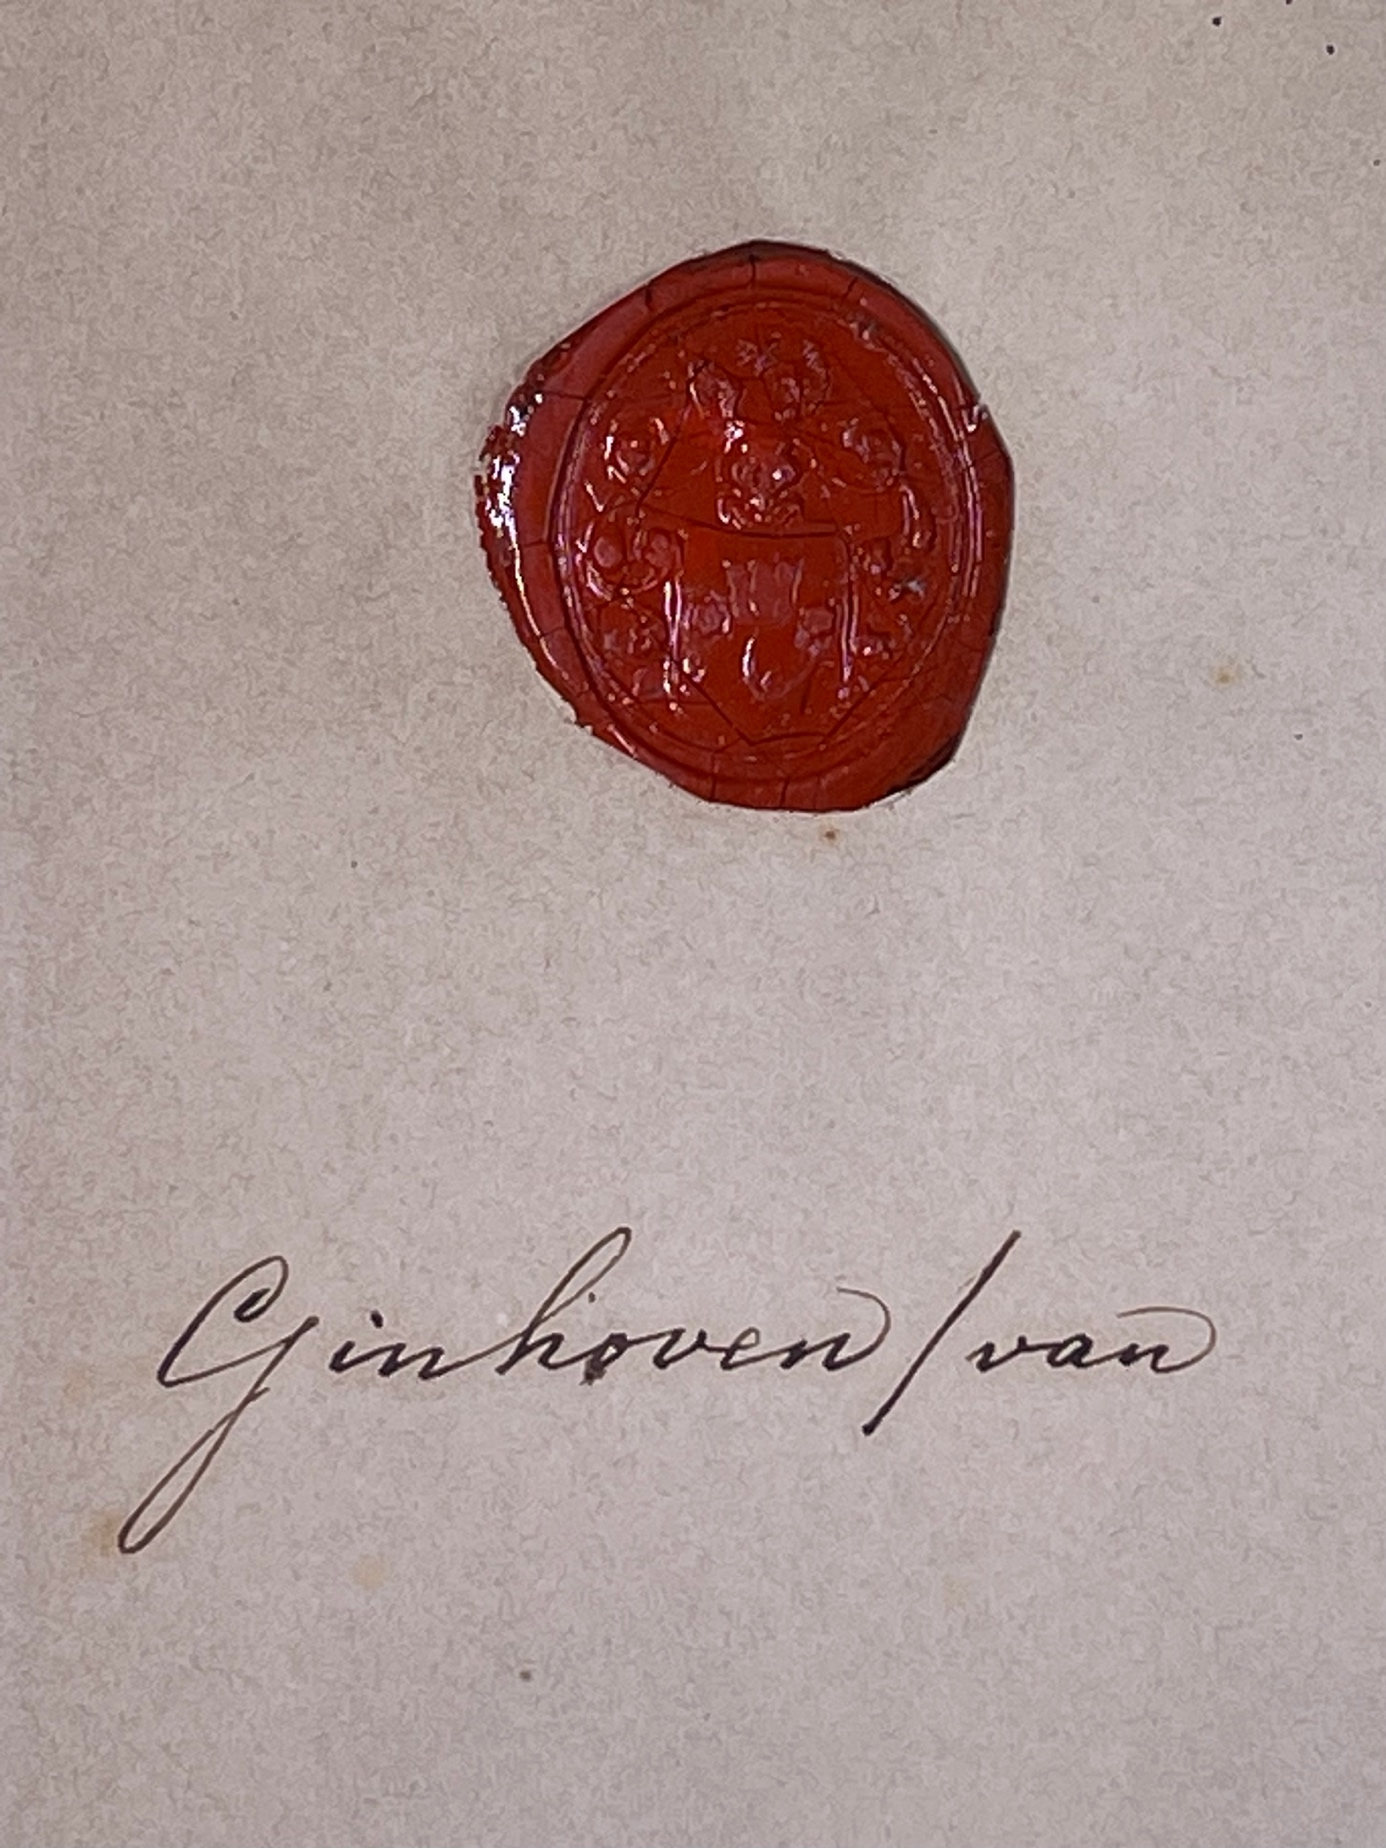 Ginhoven / van